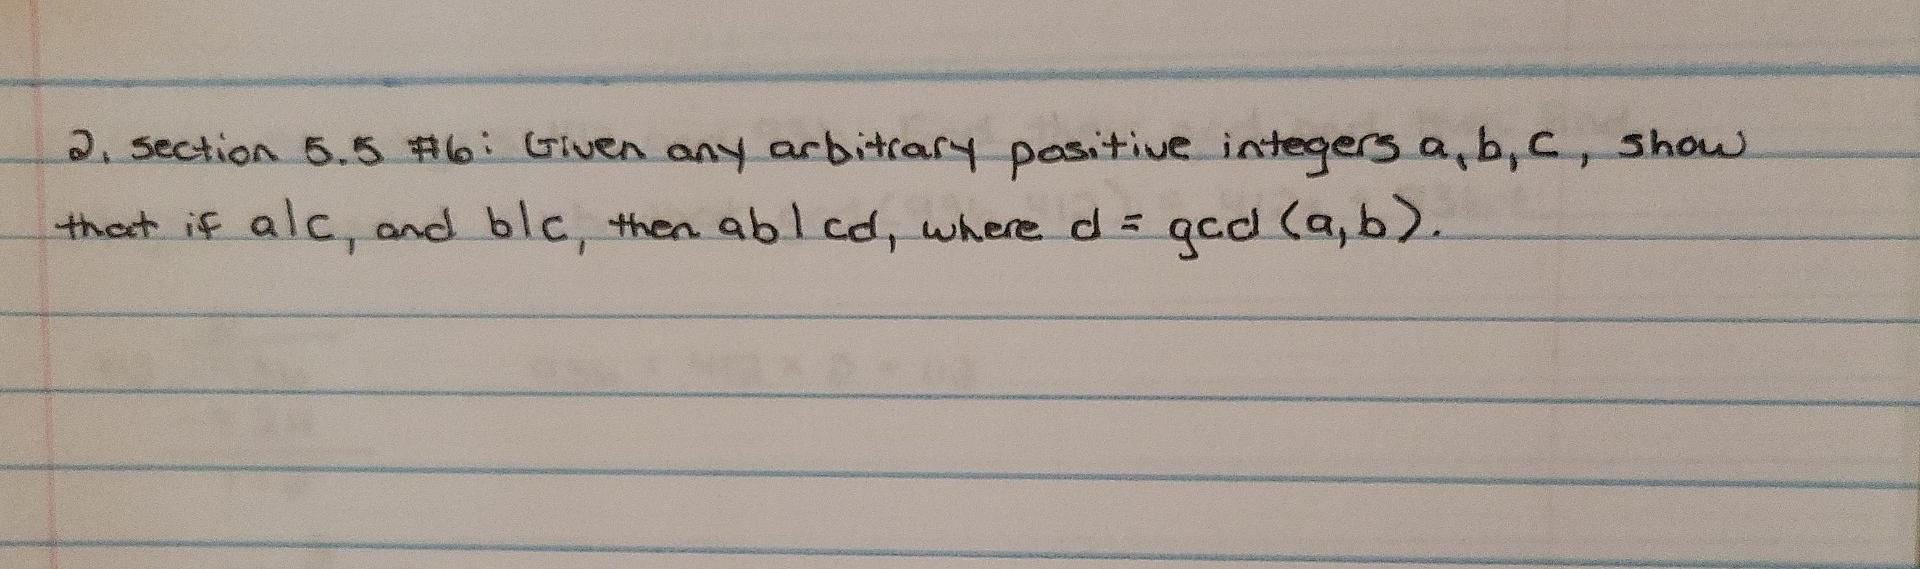 2. Section 5.5 #6: Given any arbitrary positive integers a, b, c, show
that if a|c, and b|c, then ab|cd, where d = gcd (a,b).